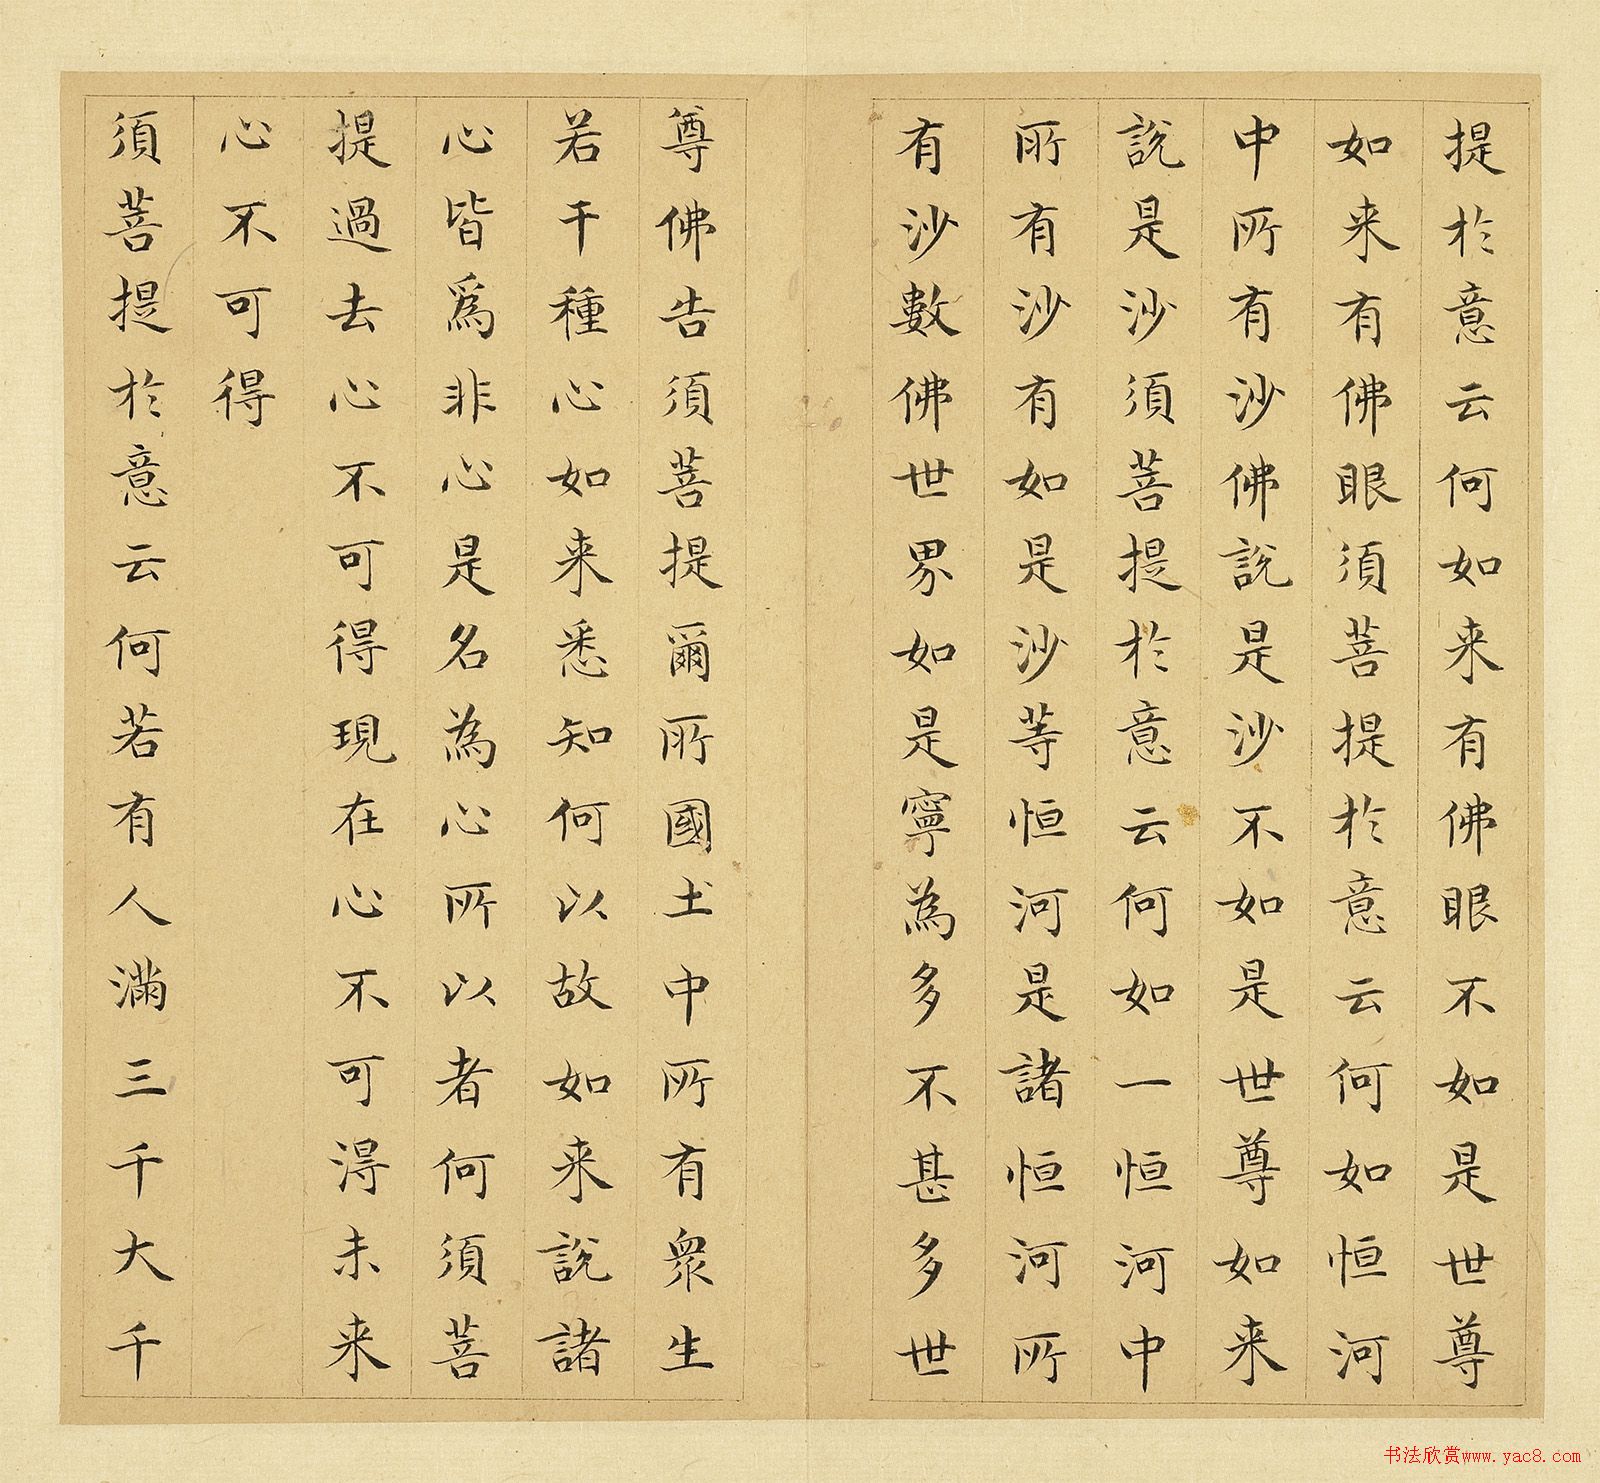 提於意云何如来有佛眼不如是世尊
如来有佛眼須菩提於意云何如恒河
中所有沙佛說是沙不如是世尊如来
說是沙須菩提於意云何如一恒河中
所有沙有如是沙等恒河是諸恒河所
有沙數佛世界如是寧為多不甚多世
尊佛告須菩提爾所國土中所有衆生
若干種心如来悉知何以故如来說諸
心皆爲非心是名為心所以者何須菩
提過去心不可得現在心不可得未来
心不可得
須菩提於意云何若有人滿三千大千
书法欣赏www.yac8.com